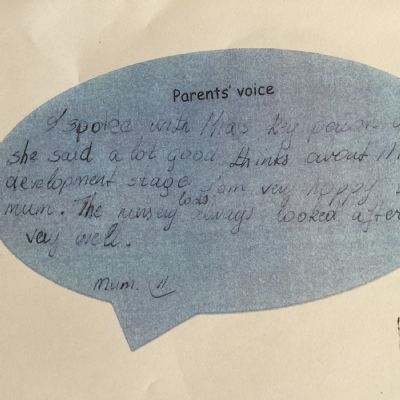 Parents' voice
I spoked with key person
she said a lot good thinks about
development stage I am very happy
mum. The nursery always looked after
kids
very well.
Mum.